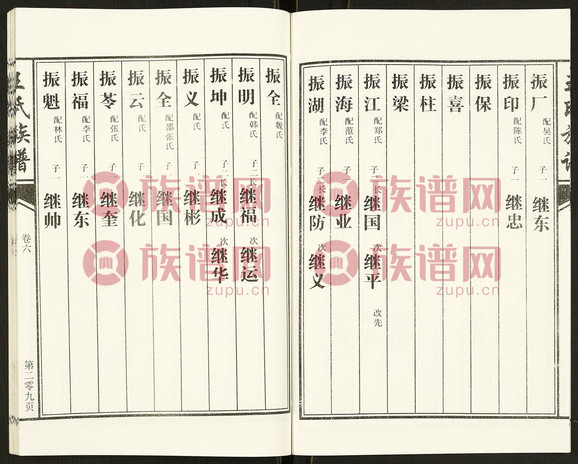 振厂 配吴氏 子一 继东
振印 配陈氏 子一 继忠
振保
振喜
振柱
振梁
振江 配郑氏 子二 长 继国 次 继平 改先
振海 配范氏 子一 继业
振湖 配李氏 子二 长 继防 次 继义
振全 配魏氏
振明 配韩氏 子二 长 继福 次 继运
振坤 配氏 子二 长 继成 次 继华
振义 配氏 子一 继彬
振全 配鄢张氏 子一 继国
振云 配氏 子一 继化
振苓 配张氏 子一 继奎
振福 配李氏 子一 继东
振魁 配林氏 子一 继帅
王氏族谱
卷六
第二零九页
族谱网
zupu.cn
族谱网
zupu.cn
族谱网
zupu.cn
族谱网
zupu.cn